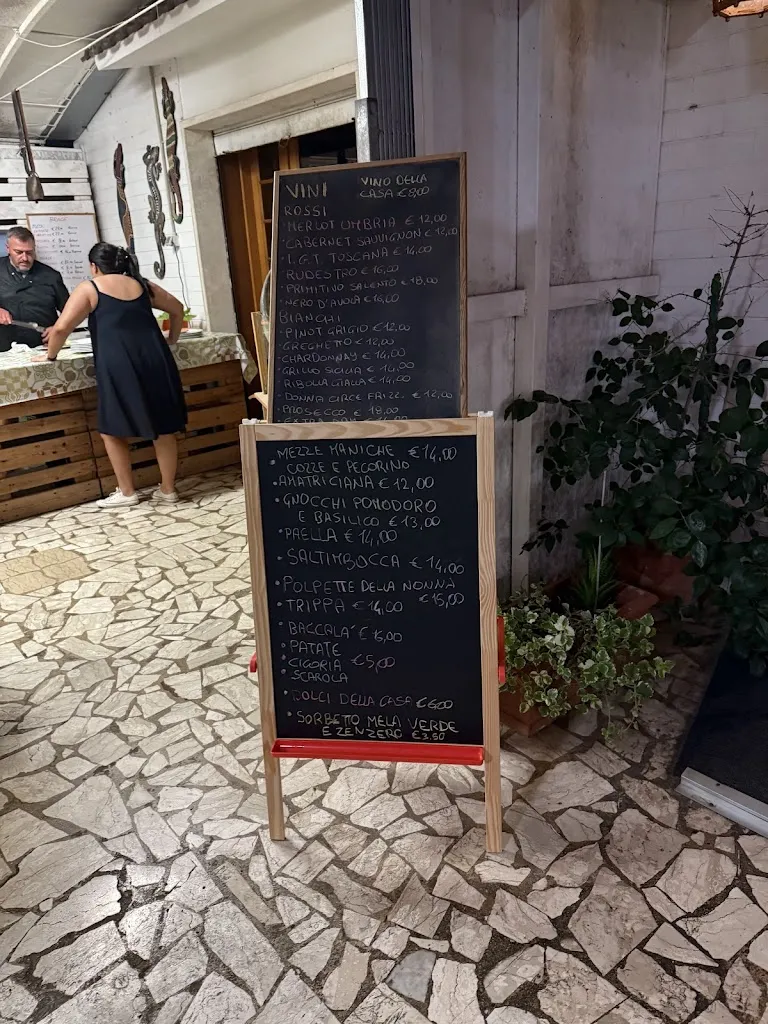 VINI VINO DELLA
CASA €8,00
ROSSI
• MERLOT UMBRIA € 12,00
• CABERNET SAUVIGNON € 12,00
• I.G.T. TOSCANA € 14,00
• RUDESTRO € 16,00
• PRIMITIVO SALENTO € 18,00
• NERO D'AVOLA € 16,00
BIANCHI
• PINOT GRIGIO € 12,00
• GREGHETTO € 12,00
• CHARDONNAY € 14,00
• GRILLO SICILIA € 14,00
• RIBOLLA GIALLA € 14,00
• DONNA CIRCE FRIZZ. € 12,00
• PROSECCO € 18,00
• MEZZE MANICHE € 14,00
COZZE E PECORINO
• AMATRICIANA € 12,00
• GNOCCHI POMODORO
E BASILICO € 13,00
• PAELLA € 14,00
• SALTIMBOCCA € 14,00
• POLPETTE DELLA NONNA
€ 15,00
• TRIPPA € 14,00
• BACCALA' € 15,00
• PATATE
• CICORIA € 5,00
• SCAROLA
• DOLCI DELLA CASA € 6,00
• SORBETTO MELA VERDE
E ZENZERO € 3,50